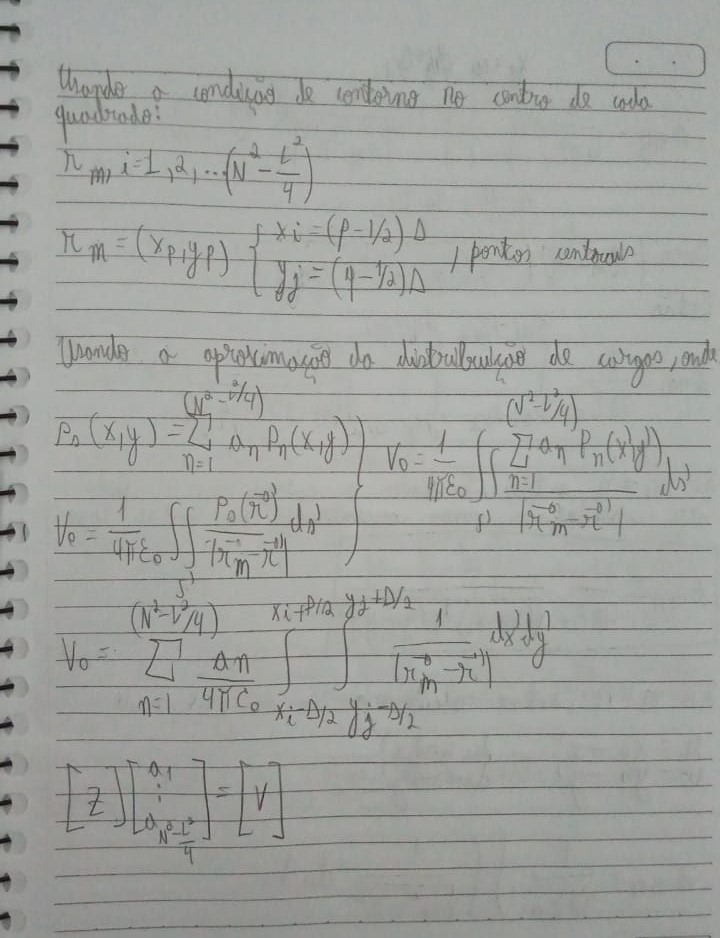 Usando a condição de contorno no centro de cada
quadrado:
r_m, i=1,2,...(N² - L²/4)
r_m = (x_p, y_p) { x_i = (p-1/2) Δ
y_j = (q-1/2) Δ , pontos centrais
Usando a aproximação da distribuição de cargas, onde
ρ_s(x,y) = Σ_{n=1}^{(N²-L²/4)} a_n P_n(x,y)
V_0 = 1/(4πε_0) ∬_{s'} ρ_s(r⃗') / |r⃗_m - r⃗'| ds'
} V_0 = 1/(4πε_0) ∬_{s'} Σ_{n=1}^{(N²-L²/4)} a_n P_n(x',y') / |r⃗_m - r⃗'| ds'
V_0 = Σ_{n=1}^{(N²-L²/4)} a_n/(4πε_0) ∫_{x_i-Δ/2}^{x_i+Δ/2} ∫_{y_j-Δ/2}^{y_j+Δ/2} 1/|r⃗_m - r⃗'| dx'dy'
[Z] [a_1 ⋮ a_{N²-L²/4}] = [V]